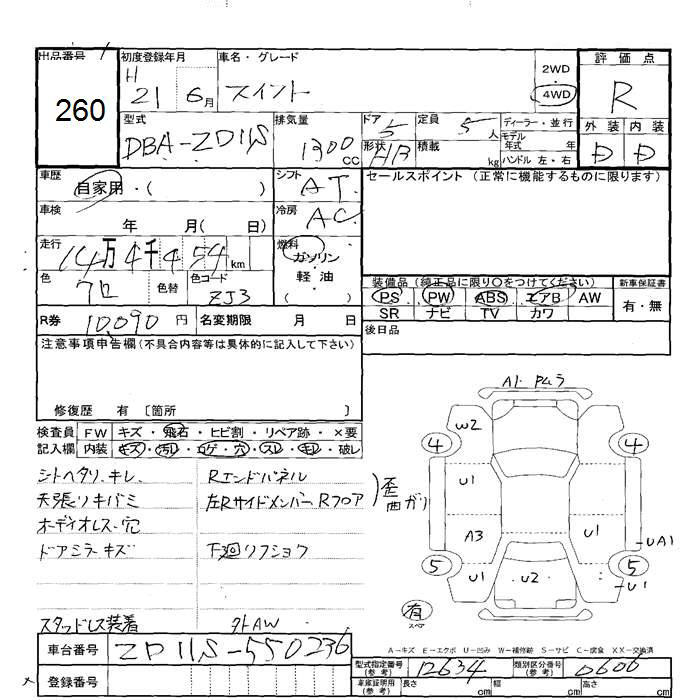 出品番号
260
初度登録年月
H
21 6月
車名・グレード
スイフト
2WD
4WD
評価点
R
外装 内装
D D
型式
DBA-ZD11S
排気量
1300 CC
ドア 5
形状 HB
定員 5 人
積載 kg
ディーラー・並行
モデル
年式 年
ハンドル 左・右
車歴
自家用・( )
シフト
AT
セールスポイント (正常に機能するものに限ります)
車検
年 月( 日)
冷房
AC
走行
14万4千454km
燃料
ガソリン
・
軽油
( )
色
クロ
色替
色コード
ZJ3
装備品 (純正品に限り○をつけてください)
PS PW ABS エアB AW
SR ナビ TV カワ
新車保証書
有・無
R券 10,090 円
名変期限 月 日
後日品
注意事項申告欄(不具合内容等は具体的に記入して下さい)
修復歴 有 〔箇所 〕
検査員
記入欄
FW キズ・飛石・ヒビ割・リペア跡・×要
内装 キズ・汚レ・コゲ・穴・スレ・キレ・破レ
シートヘタリ、キレ
天張リキバミ
オーディオレス・穴
ドアミラーキズ
スタッドレス装着
Rエンドパネル
左Rサイドメンバー、Rフロア
歪
曲ガリ
下廻リフショク
外AW
A1・Pムラ
W2
4
4
U1
A3
U1
UA1
5
5
U1
U2
U1
有
スペア
A-キズ E-エクボ U-凹み W-補修跡 S-サビ C-腐食 XX-交換済
車台番号 ZD11S-550236
登録番号
型式指定番号
(参考)
12634
類別区分番号
(参考)
0606
車庫証明用
(参考)
長さ cm
幅 cm
高さ cm